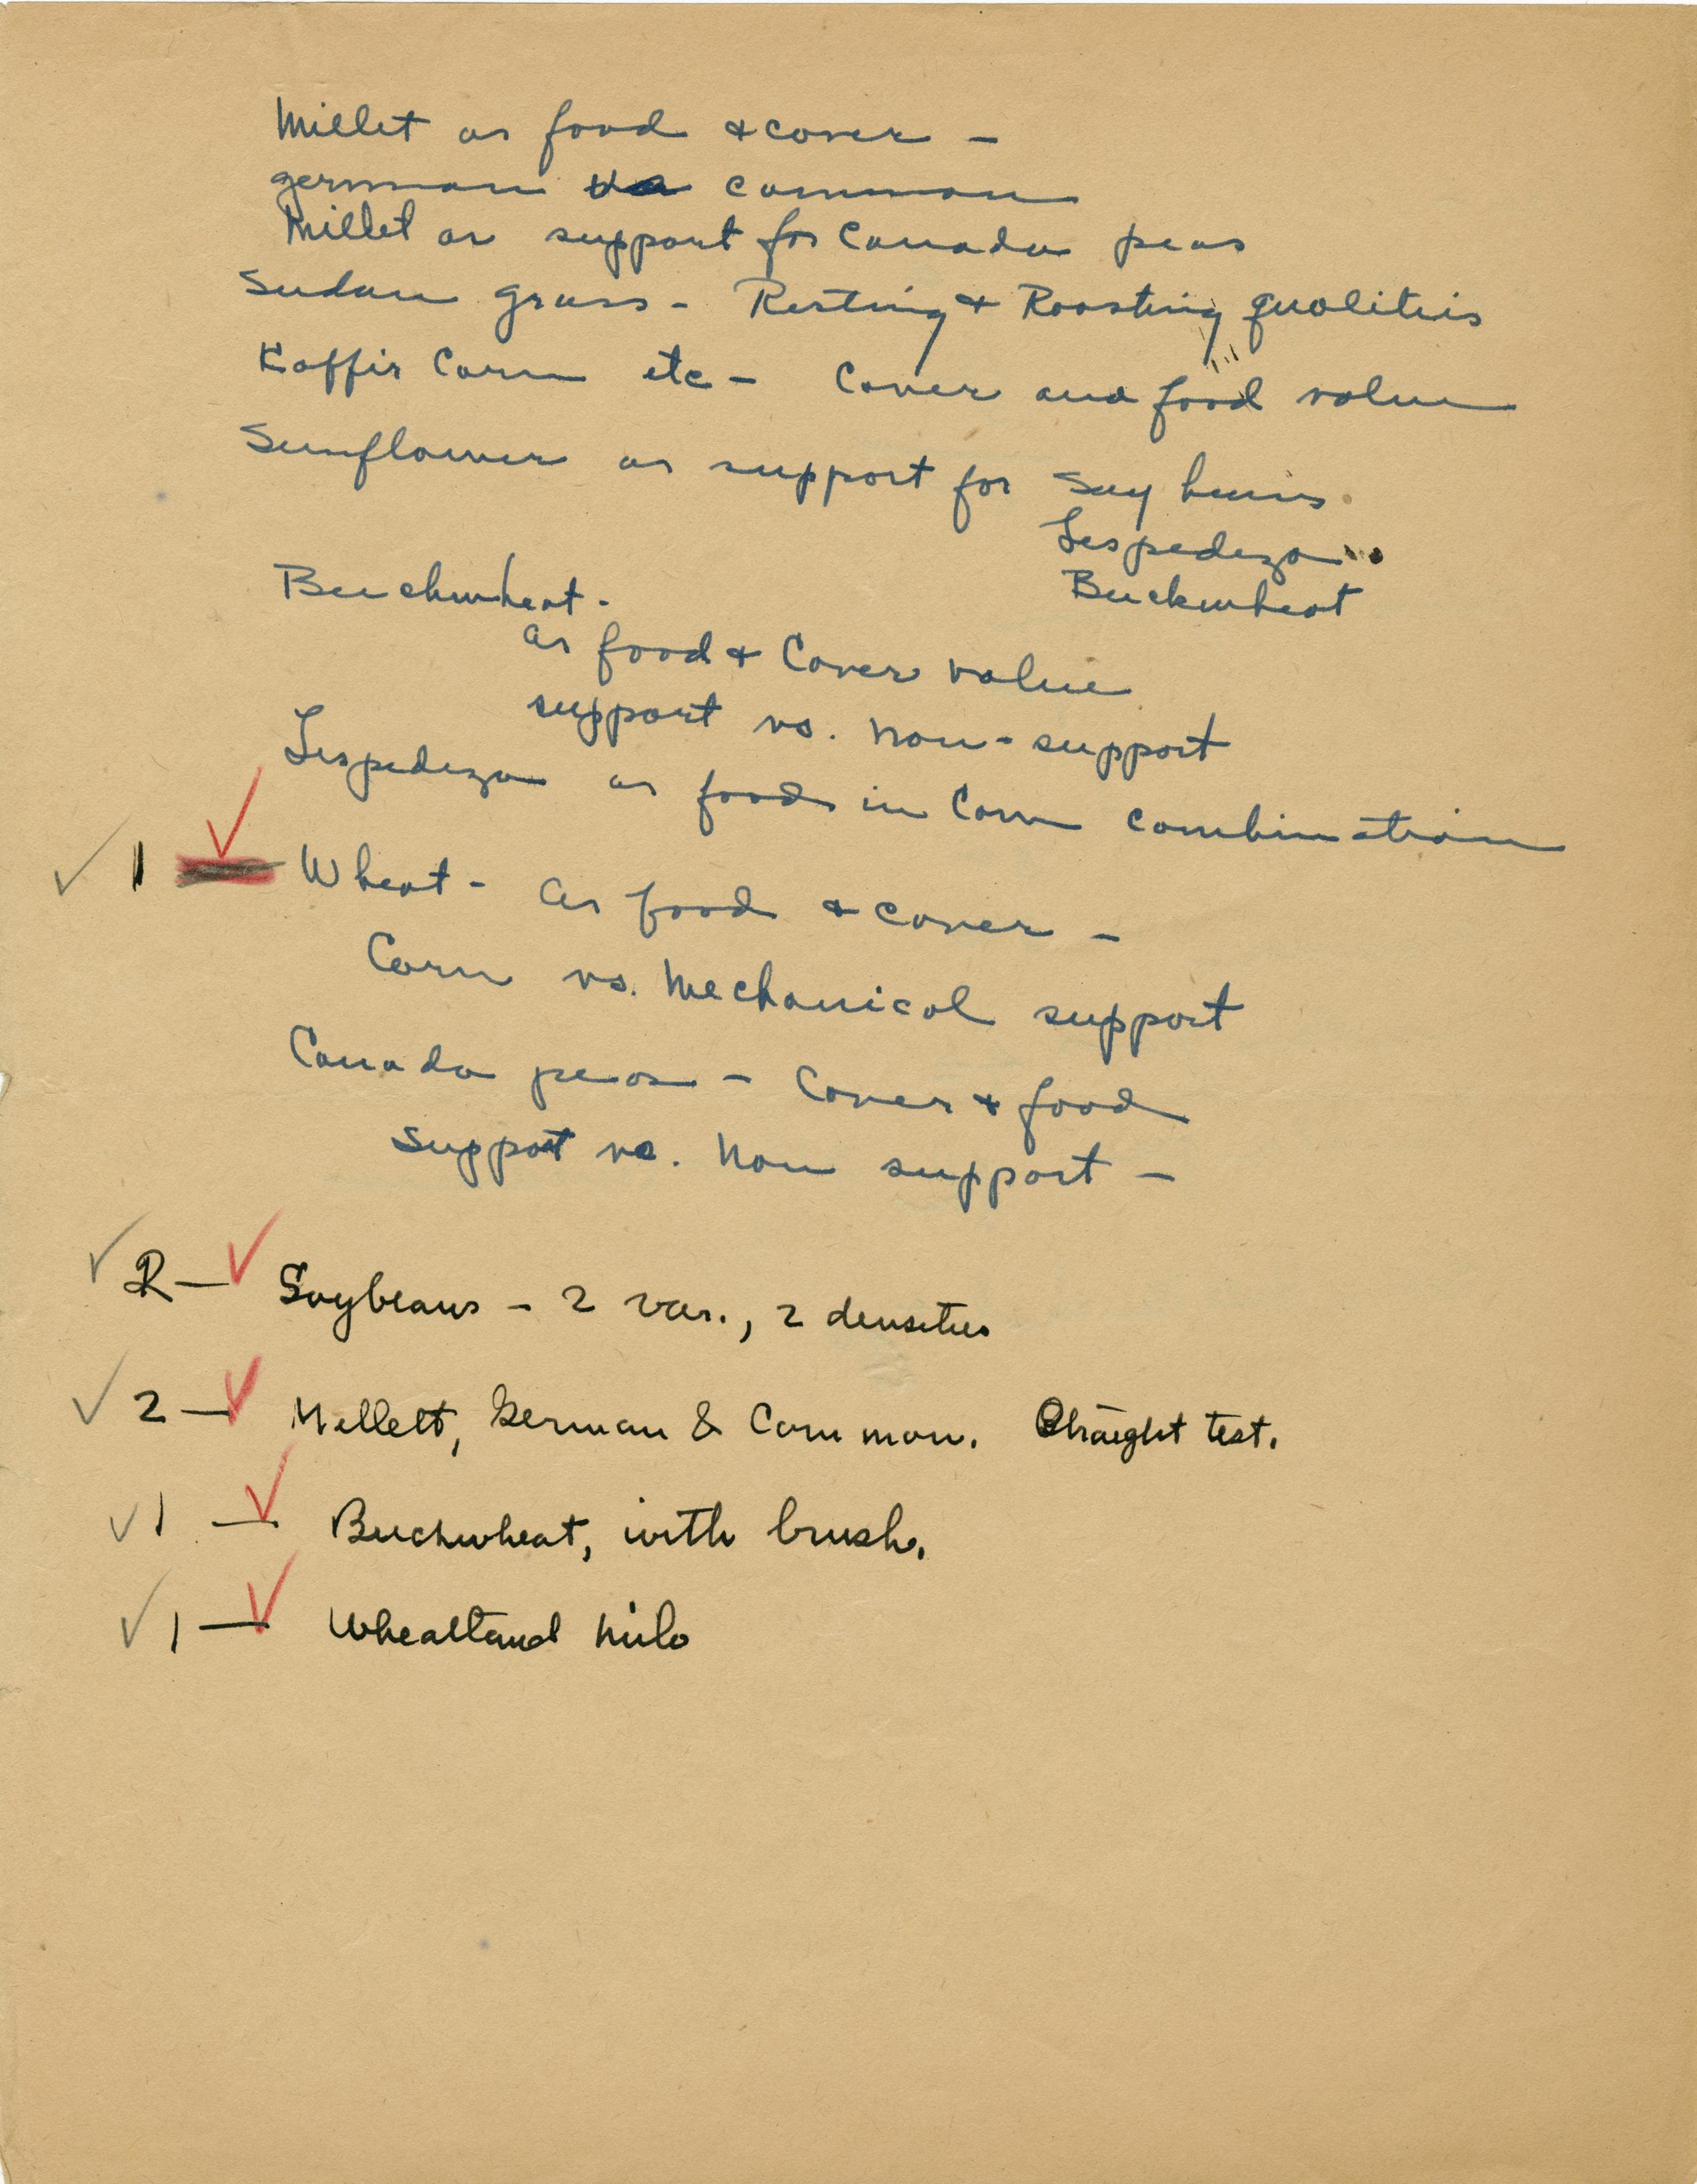 Millet as food & cover -
german vs common
Millet as support for Canada peas
Sudan grass - Resting & Roosting qualities
Kaffir Corn etc - Cover and food value
Sunflower as support for Soy beans
Lespedeza
Buckwheat
Buckwheat -
as food & Cover value
support vs. non-support
Lespedeza as food in Corn combination
✓ 1 ✓ Wheat - as food & cover -
Corn vs. mechanical support
Canada peas - Cover & food
support vs. non support -
✓ 2 — ✓ Soybeans - 2 var., 2 densities
✓ 2 — ✓ Millett, German & Common. Straight test.
✓ 1 — ✓ Buckwheat, with brush.
✓ 1 — ✓ Wheatland milo